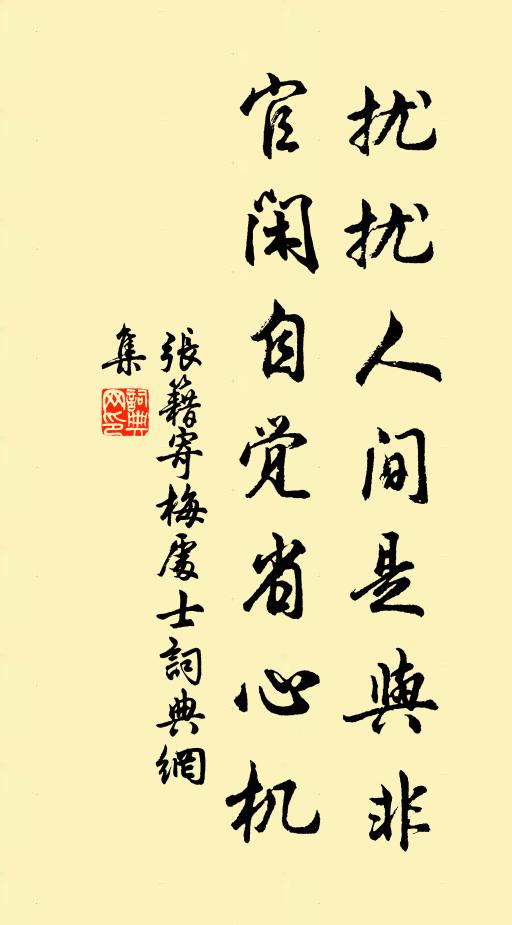 扰扰人间是與非
官闲自觉省心机
張籍寄梅處士詞典網
集
詞典
网印